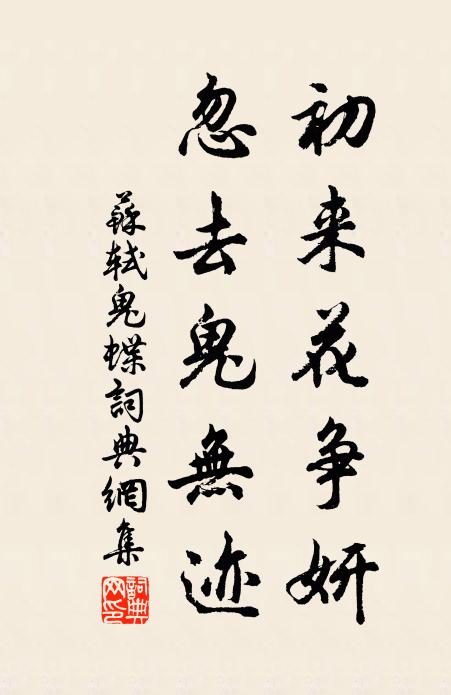 初来花争妍
忽去鬼無迹
蘇軾鬼蝶詞典網集
詞典網印